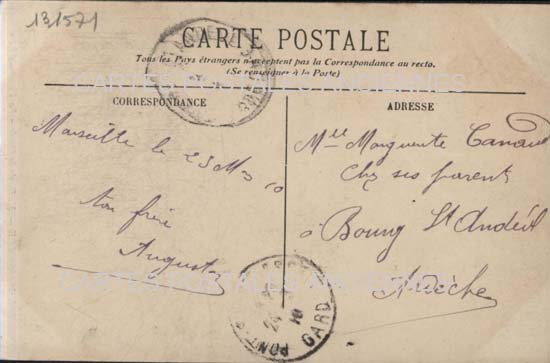 131571
CARTE POSTALE
Tous les Pays étrangers n'acceptent pas la Correspondance au recto.
(Se renseigner à la Poste)
CARTES POSTALES ANCIENNES
CORRESPONDANCE
ADRESSE
Marseille le 25 10
ton frère
Auguste
Mlle Marguerite
Chez ses parents
à Bourg St Andéol
Ardèche
CARTES POSTALES ANCIENNES
PONT
GARD
24
10